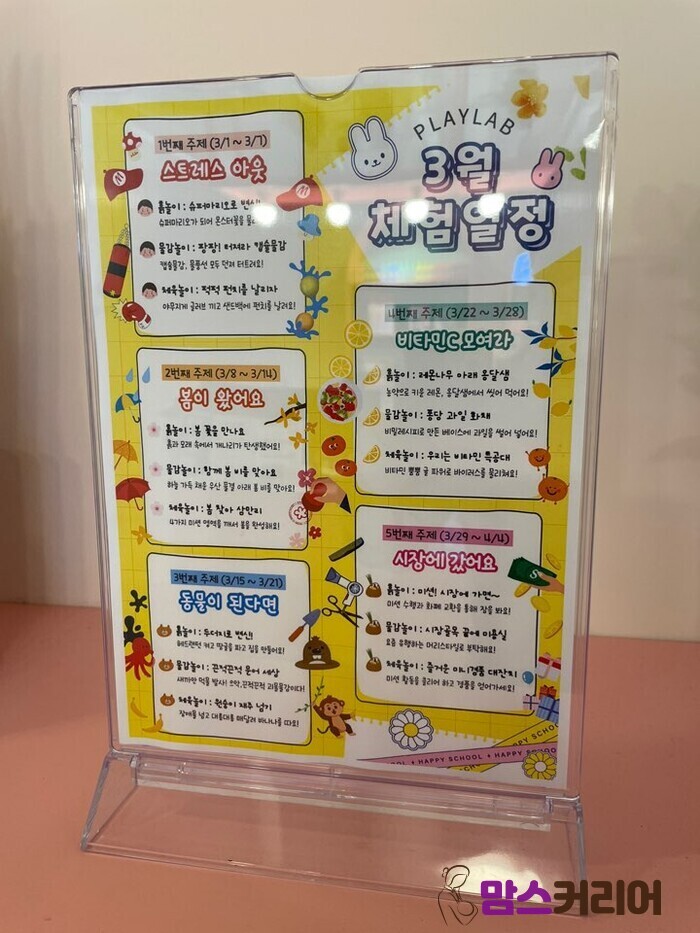 PLAYLAB
3월
체험일정
1번째 주제 (3/1 ~ 3/7)
스트레스 아웃
흙놀이 : 슈퍼마리오로 변신!
슈퍼마리오가 되어 몬스터를
물감놀이 : 팡팡! 터져라 캡슐물감
캡슐물감, 물풍선 모두 던져 터트려요!
체육놀이 : 펀치를 날리자
야무지게 글러브 끼고 샌드백에 펀치를 날려요!
2번째 주제 (3/8 ~ 3/14)
봄이 왔어요
흙놀이 : 봄 꽃을 만나요
흙과 모래 속에서 개나리가 탄생했어요!
물감놀이 : 함께 봄 비를 맞아요
하늘 가득 채운 우산 물결 아래 봄 비를 맞아요!
체육놀이 : 봄 찾아 삼만리
4가지 미션 영역을 깨서 봄을 완성해요!
3번째 주제 (3/15 ~ 3/21)
동물이 된다면
흙놀이 : 두더지로 변신!
헤드랜턴 켜고 땅굴을 파고 집을 만들어요!
물감놀이 : 끈적끈적 문어 세상
새까만 먹물 발사! 으악, 끈적끈적 괴물물감이다!
체육놀이 : 원숭이 재주 넘기
장애물 넘고 대롱대롱 매달려 바나나를 따요!
4번째 주제 (3/22 ~ 3/28)
비타민C 모여라
흙놀이 : 레몬나무 아래 옹달샘
농약으로 키운 레몬, 옹달샘에서 씻어 먹어요!
물감놀이 : 퐁당 과일 화채
비밀레시피로 만든 베이스에 과일을 썰어 넣어요!
체육놀이 : 우리는 비타민 특공대
비타민 뿜뿜 귤 파워로 바이러스를 물리쳐요!
5번째 주제 (3/29 ~ 4/4)
시장에 갔어요
흙놀이 : 미션! 시장에 가면~
미션 수행과 화폐 교환을 통해 장을 봐요!
물감놀이 : 시장골목 끝에 미용실
요즘 유행하는 머리스타일로 부탁해요!
체육놀이 : 즐거운 미니경품 대잔치
미션 활동을 클리어 하고 경품을 얻어가세요!
HAPPY SCHOOL
맘스커리어